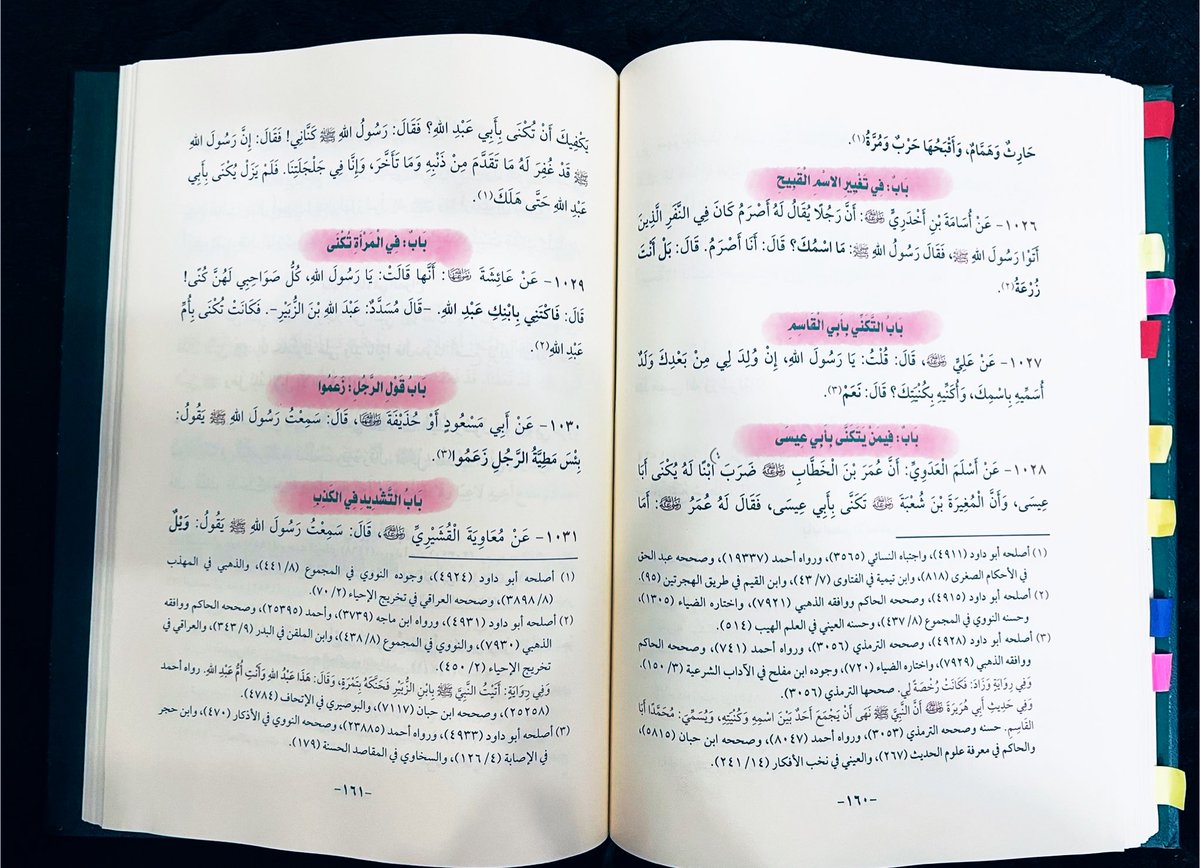 حَارِثٌ وَهَمَّامٌ، وَأَقْبَحُهَا حَرْبٌ وَمُرَّةُ(١).
بَابٌ: فِي تَغْيِيرِ الِاسْمِ الْقَبِيحِ
١٠٢٦- عَنْ أُسَامَةَ بْنِ أَخْدَرِيٍّ ﵁: أَنَّ رَجُلًا يُقَالُ لَهُ أَصْرَمُ كَانَ فِي النَّفَرِ الَّذِينَ
أَتَوْا رَسُولَ اللهِ ﷺ، فَقَالَ رَسُولُ اللهِ ﷺ: مَا اسْمُكَ؟ قَالَ: أَنَا أَصْرَمُ. قَالَ: بَلْ أَنْتَ
زُرْعَةُ(٢).
بَابُ التَّكَنِّي بِأَبِي الْقَاسِمِ
١٠٢٧- عَنْ عَلِيٍّ ﵁، قَالَ: قُلْتُ: يَا رَسُولَ اللهِ، إِنْ وُلِدَ لِي مِنْ بَعْدِكَ وَلَدٌ
أُسَمِّيهِ بِاسْمِكَ، وَأُكَنِّيهِ بِكُنْيَتِكَ؟ قَالَ: نَعَمْ(٣).
بَابٌ: فِيمَنْ يَتَكَنَّى بِأَبِي عِيسَى
١٠٢٨- عَنْ أَسْلَمَ الْعَدَوِيِّ: أَنَّ عُمَرَ بْنَ الْخَطَّابِ ﵁ ضَرَبَ ابْنًا لَهُ يُكْنَى أَبَا
عِيسَى، وَأَنَّ الْمُغِيرَةَ بْنَ شُعْبَةَ ﵁ تَكَنَّى بِأَبِي عِيسَى، فَقَالَ لَهُ عُمَرُ ﵁: أَمَا
(١) أصلحه أبو داود (٤٩١١)، واجتباه النسائي (٣٥٦٥)، ورواه أحمد (١٩٣٣٧)، وصححه عبد الحق
في الأحكام الصغرى (٨١٨)، وابن تيمية في الفتاوى (٤٣/٧)، وابن القيم في طريق الهجرتين (٩٥).
(٢) أصلحه أبو داود (٤٩١٥)، وصححه الحاكم ووافقه الذهبي (٧٩٢١)، واختاره الضياء (١٣٠٥)،
وحسنه النووي في المجموع (٤٣٧/٨)، وحسنه العيني في العلم الهيب (٥١٤).
(٣) أصلحه أبو داود (٤٩٢٨)، وصححه الترمذي (٣٠٥٦)، ورواه أحمد (٧٤١)، وصححه الحاكم
ووافقه الذهبي (٧٩٢٩)، واختاره الضياء (٧٢٠)، وجوده ابن مفلح في الآداب الشرعية (١٥٠/٣).
وَفِي رِوَايَةٍ وَزَادَ: فَكَانَتْ رُخْصَةً لِي. صححها الترمذي (٣٠٥٦).
وَفِي حَدِيثِ أَبِي هُرَيْرَةَ ﵁ أَنَّ النَّبِيَّ ﷺ نَهَى أَنْ يَجْمَعَ أَحَدٌ بَيْنَ اسْمِهِ وَكُنْيَتِهِ، وَيُسَمِّيَ: مُحَمَّدًا أَبَا
القَاسِمِ. حسنه وصححه الترمذي (٣٠٥٣)، ورواه أحمد (٨٠٤٧)، وصححه ابن حبان (٥٨١٥)،
والحاكم في معرفة علوم الحديث (٢٦٧)، والعيني في نخب الأفكار (٢٤١/١٤).
-١٦٠-
يَكْفِيكَ أَنْ تُكْنَى بِأَبِي عَبْدِ اللهِ؟ فَقَالَ: رَسُولُ اللهِ ﷺ كَنَّانِي! فَقَالَ: إِنَّ رَسُولَ اللهِ
ﷺ قَدْ غُفِرَ لَهُ مَا تَقَدَّمَ مِنْ ذَنْبِهِ وَمَا تَأَخَّرَ، وَإِنَّا فِي جَلْجَلَتِنَا. فَلَمْ يَزَلْ يُكْنَى بِأَبِي
عَبْدِ اللهِ حَتَّى هَلَكَ(١).
بَابٌ: فِي الْمَرْأَةِ تُكْنَى
١٠٢٩- عَنْ عَائِشَةَ ﵂: أَنَّها قَالَتْ: يَا رَسُولَ اللهِ، كُلُّ صَوَاحِبِي لَهُنَّ كُنًى!
قَالَ: فَاكْتَنِي بِابْنِكِ عَبْدِ اللهِ. -قَالَ مُسَدَّدٌ: عَبْدَ اللهِ بْنَ الزُّبَيْرِ-. فَكَانَتْ تُكْنَى بِأُمِّ
عَبْدِ اللهِ(٢).
بَابُ قَوْلِ الرَّجُلِ: زَعَمُوا
١٠٣٠- عَنْ أَبِي مَسْعُودٍ أَوْ حُذَيْفَةَ ﵄، قَالَ: سَمِعْتُ رَسُولَ اللهِ ﷺ يَقُولُ:
بِئْسَ مَطِيَّةُ الرَّجُلِ زَعَمُوا(٣).
بَابُ التَّشْدِيدِ فِي الْكَذِبِ
١٠٣١- عَنْ مُعَاوِيَةَ الْقُشَيْرِيِّ ﵁، قَالَ: سَمِعْتُ رَسُولَ اللهِ ﷺ يَقُولُ: وَيْلٌ
(١) أصلحه أبو داود (٤٩٢٤)، وجوده النووي في المجموع (٤٤١/٨)، والذهبي في المهذب
(٣٨٩٨/٨)، وصححه العراقي في تخريج الإحياء (٧٠/٢).
(٢) أصلحه أبو داود (٤٩٣١)، ورواه ابن ماجه (٣٧٣٩)، وأحمد (٢٥٣٩٥)، وصححه الحاكم ووافقه
الذهبي (٧٩٣٠)، والنووي في المجموع (٤٣٨/٨)، وابن الملقن في البدر (٣٤٣/٩)، والعراقي في
تخريج الإحياء (٤٥٠/٢).
وَفِي رِوَايَةٍ: أَتَيْتُ النَّبِيَّ ﷺ بِابْنِ الزُّبَيْرِ فَحَنَّكَهُ بِتَمْرَةٍ، وَقَالَ: هَذَا عَبْدُ اللهِ وَأَنْتِ أُمُّ عَبْدِ اللهِ. رواه أحمد
(٢٥٢٥٨)، وصححه ابن حبان (٧١١٧)، والبوصيري في الإتحاف (٤٧٨٤).
(٣) أصلحه أبو داود (٤٩٣٣)، ورواه أحمد (٢٣٨٨٥)، وصححه النووي في الأذكار (٤٧٠)، وابن حجر
في الإصابة (١٢٦/٤)، والسخاوي في المقاصد الحسنة (١٧٩).
-١٦١-